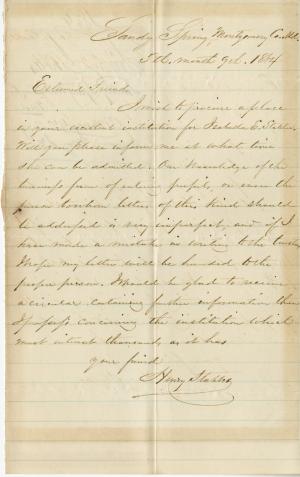 Sandy Spring, Montgomery Co. Md.
5th month 9th. 1864
Esteemed Friend
I wish to procure a place
in your excellent institution for Isabella E. Stabler
Will you please inform me at what time
she can be admitted. Our knowledge of the
of entering pupils, or even the
person to whom letters of this kind should
be addressed is very imperfect, and if I
have made a mistake in writing to the
I hope my letter will be handed to the
proper person. I should be glad to receive
a circular containing further information than
I possess concerning the institution which
must interest thousands as it has
your friend
Henry Stabler